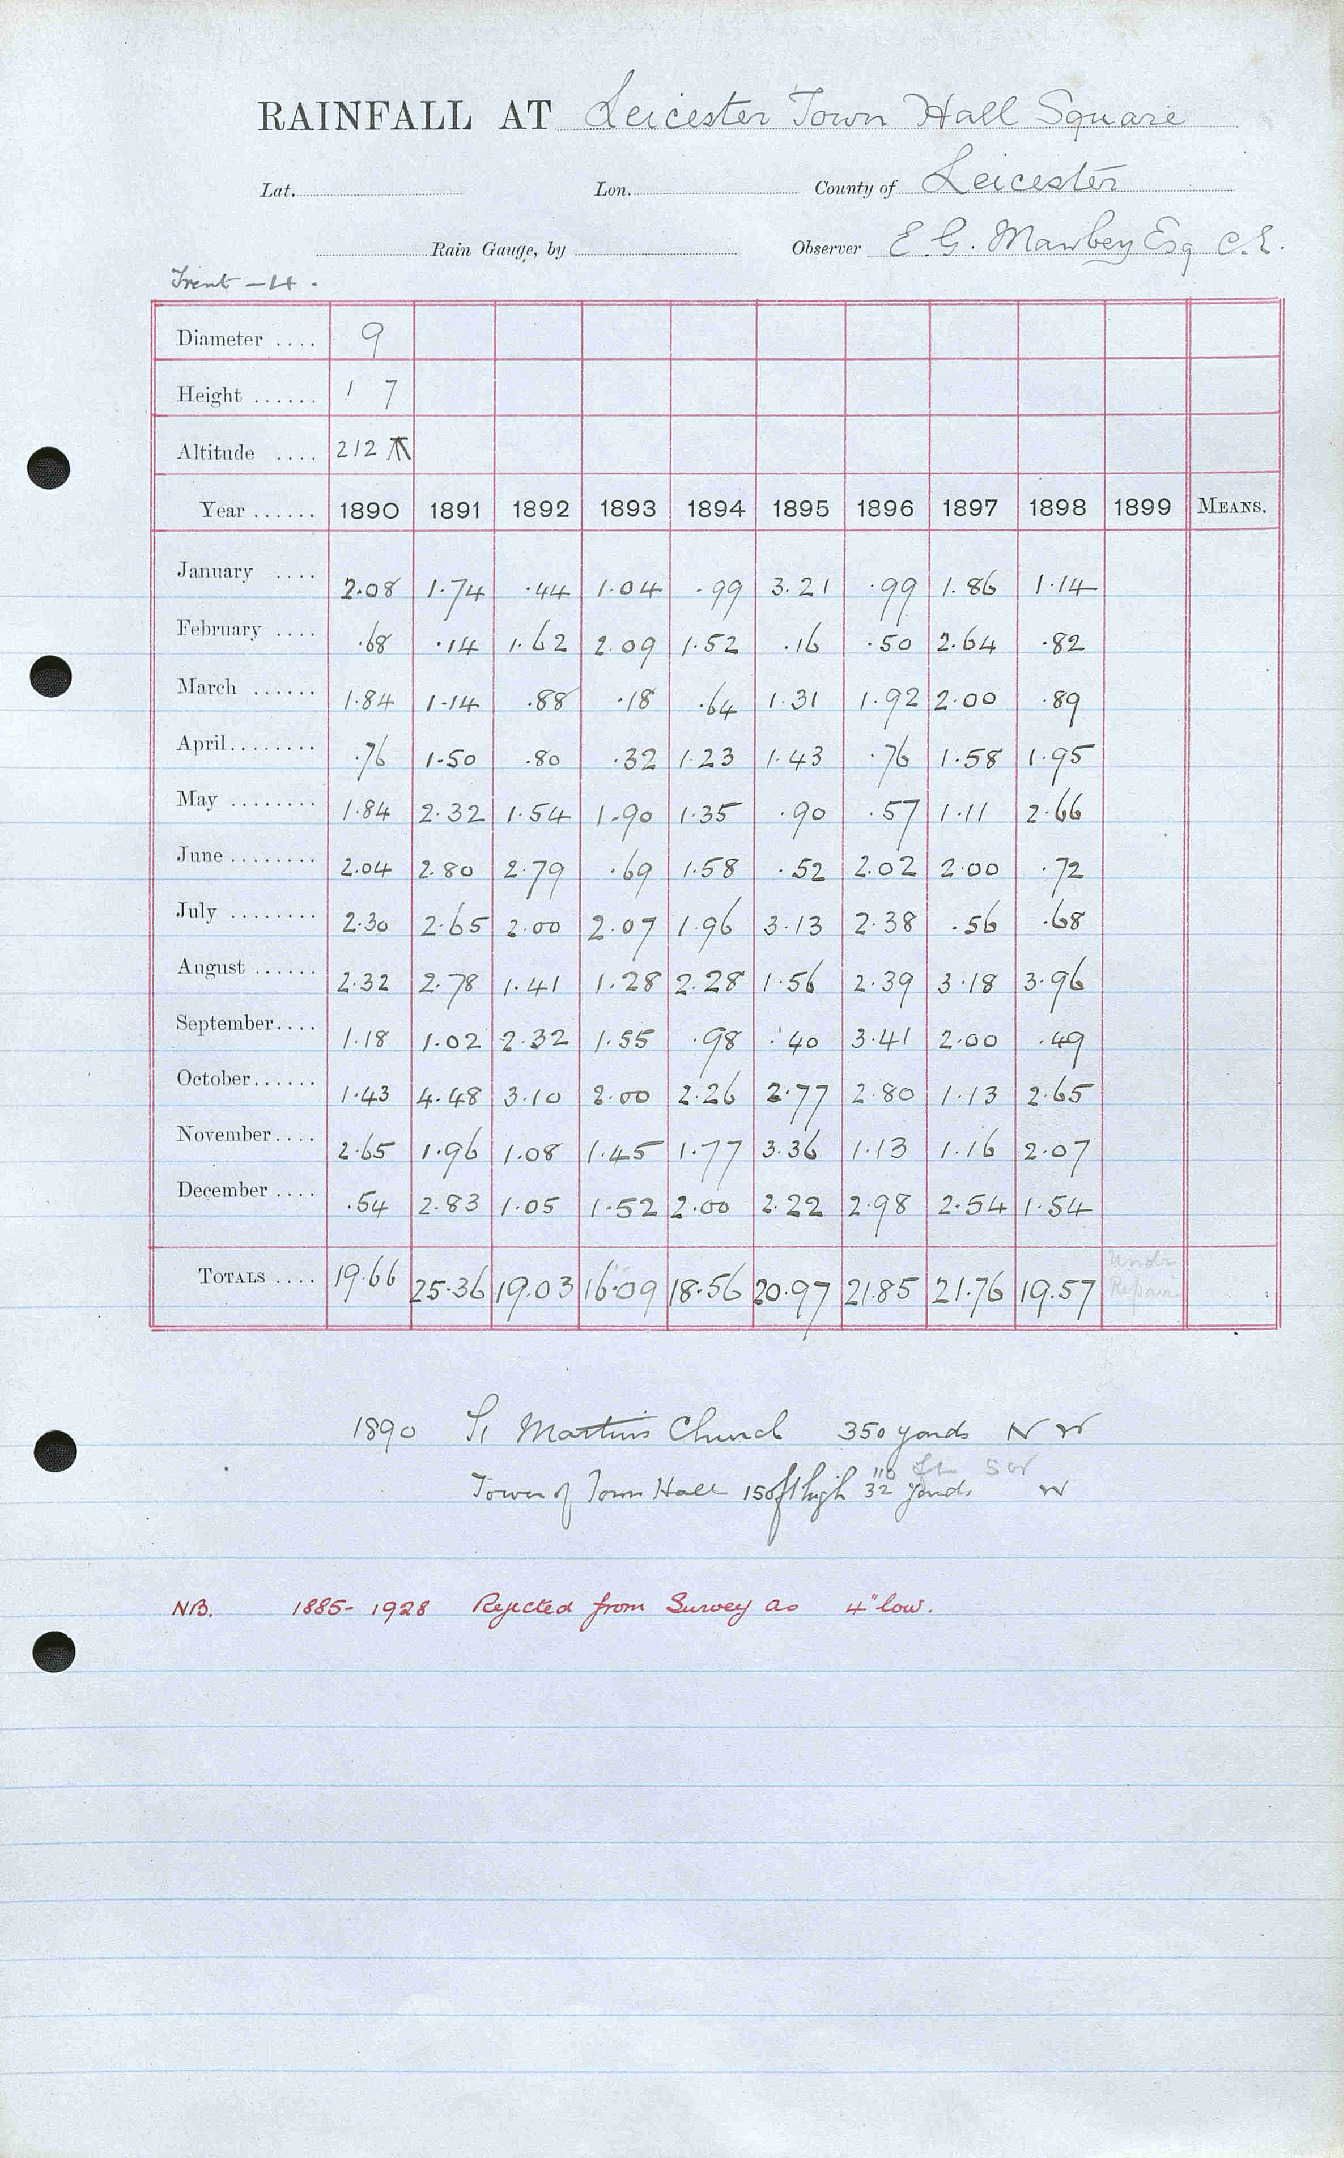 RAINFALL AT Leicester Town Hall Square
Lat. Lon. County of Leicester
Rain Gauge, by Observer E. G. Mawbey Esq C.E.
Trent - 4.
Diameter .... 9
Height ...... 1 7
Altitude .... 212
Year ...... 1890 1891 1892 1893 1894 1895 1896 1897 1898 1899 MEANS.
January .... 2.08 1.74 .44 1.04 .99 3.21 .99 1.86 1.14
February .... .68 .14 1.62 2.09 1.52 .16 .50 2.64 .82
March ...... 1.84 1.14 .88 .18 .64 1.31 1.92 2.00 .89
April........ .76 1.50 .80 .32 1.23 1.43 .76 1.58 1.95
May ........ 1.84 2.32 1.54 1.90 1.35 .90 .57 1.11 2.66
June ........ 2.04 2.80 2.79 .69 1.58 .52 2.02 2.00 .72
July ........ 2.30 2.65 2.00 2.07 1.96 3.13 2.38 .56 .68
August ...... 2.32 2.78 1.41 1.28 2.28 1.56 2.39 3.18 3.96
September.... 1.18 1.02 2.32 1.55 .98 .40 3.41 2.00 .49
October...... 1.43 4.48 3.10 2.00 2.26 2.77 2.80 1.13 2.65
November.... 2.65 1.96 1.08 1.45 1.77 3.36 1.13 1.16 2.07
December .... .54 2.83 1.05 1.52 2.00 2.22 2.98 2.54 1.54
TOTALS .... 19.66 25.36 19.03 16.09 18.56 20.97 21.85 21.76 19.57 Under Repair
1890 St Martins Church 350 yards N W
110 ft SW
Tower of Town Hall 150ft high 32 yards W
NB. 1885-1928 Rejected from Survey as 4" low.